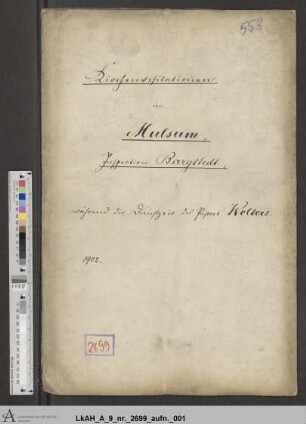 558
Kirchenvisitationen
in
Mulsum,
Inspektion Bargstedt,
während der Dienstzeit des Pastors Wolters.
1902.
2699
LkAH_A_9_nr._2699_aufn._001